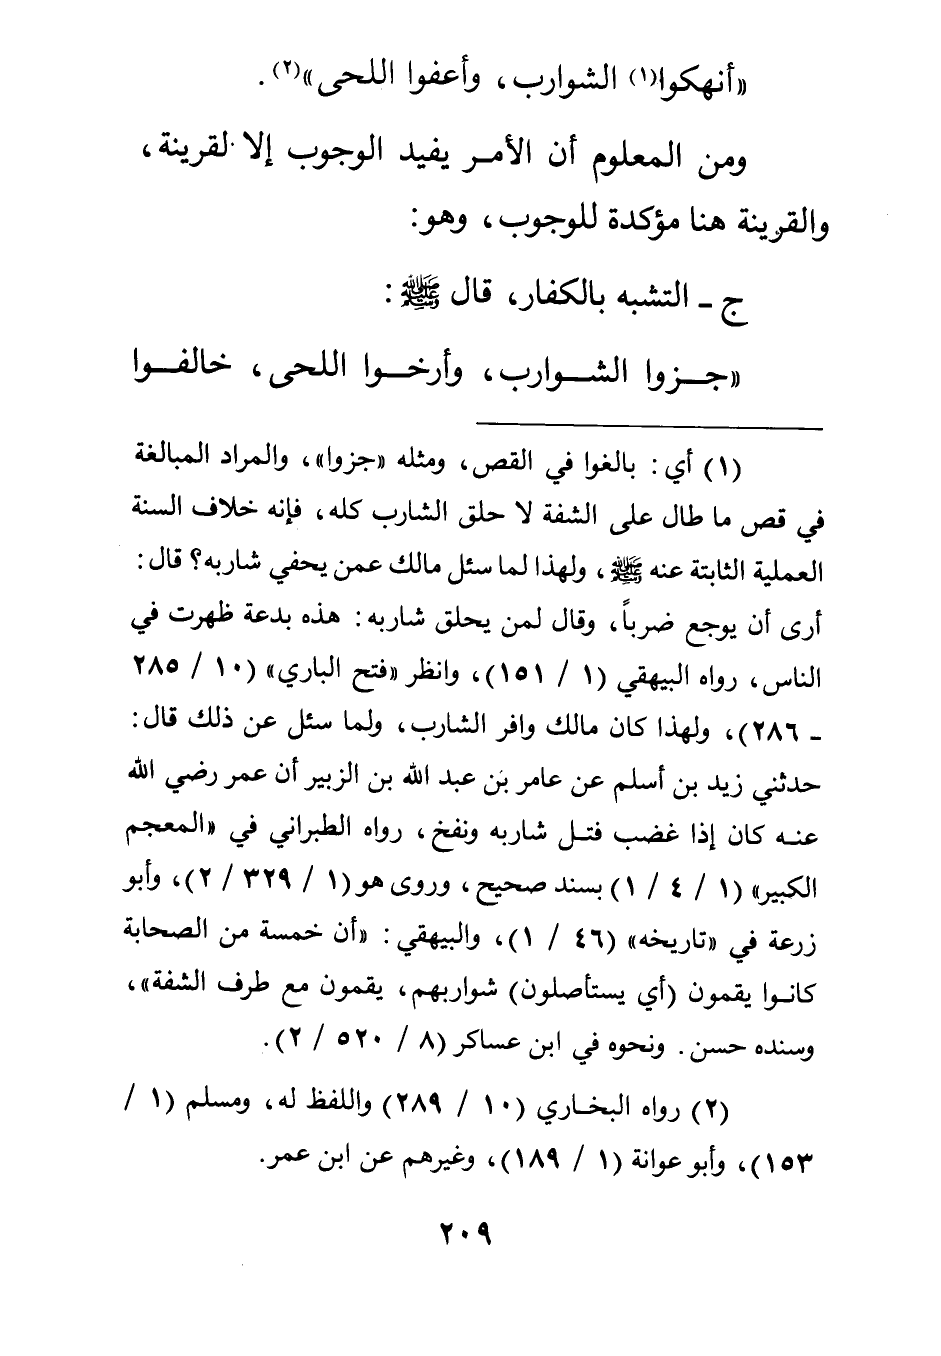 «أنهكوا(١) الشوارب، وأعفوا اللحى»(٢).
ومن المعلوم أن الأمر يفيد الوجوب إلا لقرينة،
والقرينة هنا مؤكدة للوجوب، وهو:
ج ـ التشبه بالكفار، قال ﷺ:
«جزوا الشوارب، وأرخوا اللحى، خالفوا
(١) أي: بالغوا في القص، ومثله «جزوا»، والمراد المبالغة
في قص ما طال على الشفة لا حلق الشارب كله، فإنه خلاف السنة
العملية الثابتة عنه ﷺ، ولهذا لما سئل مالك عمن يحفي شاربه؟ قال:
أرى أن يوجع ضرباً، وقال لمن يحلق شاربه: هذه بدعة ظهرت في
الناس، رواه البيهقي (١ / ١٥١)، وانظر «فتح الباري» (١٠ / ٢٨٥
ـ ٢٨٦)، ولهذا كان مالك وافر الشارب، ولما سئل عن ذلك قال:
حدثني زيد بن أسلم عن عامر بن عبد الله بن الزبير أن عمر رضي الله
عنه كان إذا غضب فتل شاربه ونفخ، رواه الطبراني في «المعجم
الكبير» (١ / ٤ / ١) بسند صحيح، وروى هو (١ / ٣٢٩ / ٢)، وأبو
زرعة في «تاريخه» (٤٦ / ١)، والبيهقي: «أن خمسة من الصحابة
كانوا يقمون (أي يستأصلون) شواربهم، يقمون مع طرف الشفة»،
وسنده حسن. ونحوه في ابن عساكر (٨ / ٥٢٠ / ٢).
(٢) رواه البخاري (١٠ / ٢٨٩) واللفظ له، ومسلم (١ /
١٥٣)، وأبو عوانة (١ / ١٨٩)، وغيرهم عن ابن عمر.
٢٠٩